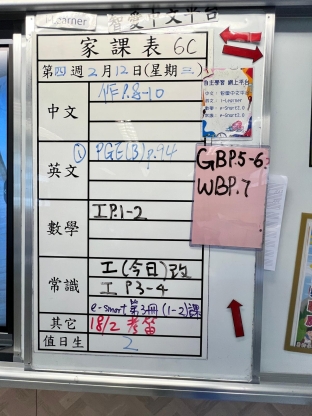 i-Learner 智愛中文平台
家課表 6C
第四週2月12日(星期三)
中文
作P.8-10
英文
① PGE(3)p.94
數學
工P.1-2
常識
工(今日)改
工P3-4
e-smart 第3冊(1-2)課
其它
18/2 考笛
值日生
2
自主學習 網上平台
GBP.5-6
WBP.7